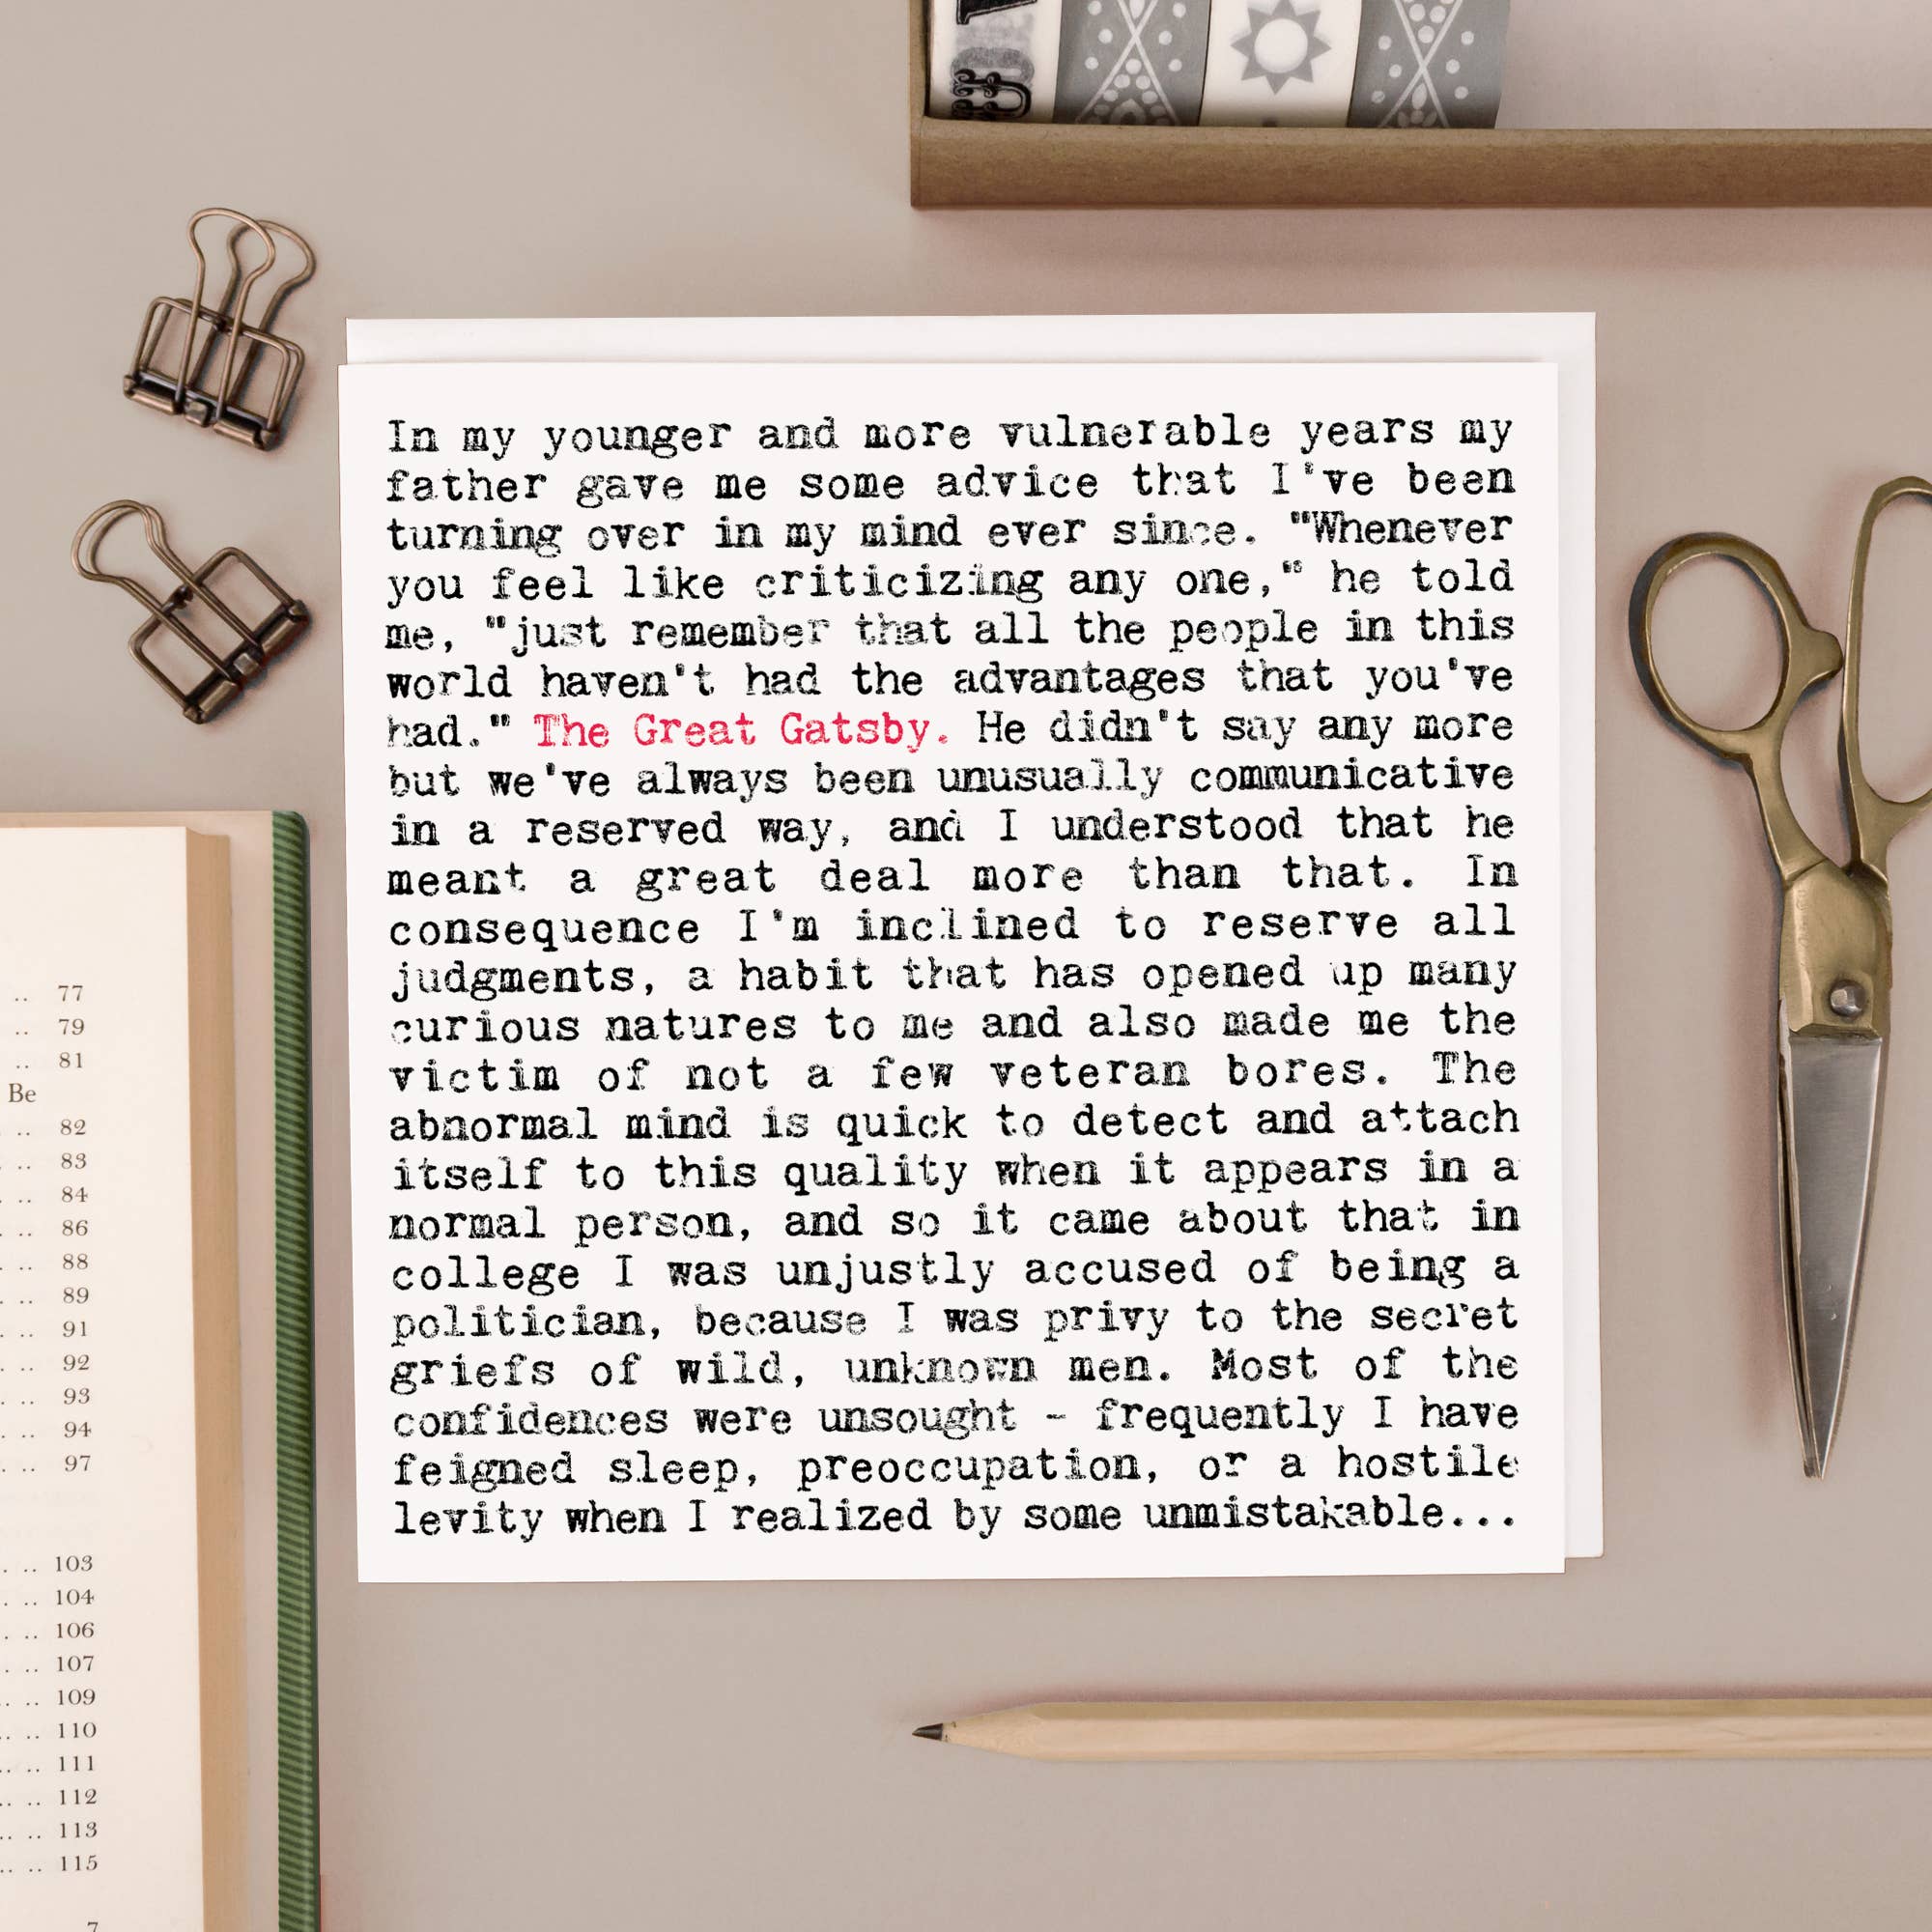 In my younger and more vulnerable years my
father gave me some advice that I've been
turning over in my mind ever since. "Whenever
you feel like criticizing any one," he told
me, "just remember that all the people in this
world haven't had the advantages that you've
had." The Great Gatsby. He didn't say any more
but we've always been unusually communicative
in a reserved way, and I understood that he
meant a great deal more than that. In
consequence I'm inclined to reserve all
judgments, a habit that has opened up many
curious natures to me and also made me the
victim of not a few veteran bores. The
abnormal mind is quick to detect and attach
itself to this quality when it appears in a
normal person, and so it came about that in
college I was unjustly accused of being a
politician, because I was privy to the secret
griefs of wild, unknown men. Most of the
confidences were unsought - frequently I have
feigned sleep, preoccupation, or a hostile
levity when I realized by some unmistakable...
.. 77
.. 79
.. 81
Be
.. 82
.. 83
.. 84
.. 86
.. 88
.. 89
.. 91
.. 92
.. 93
.. 94
.. 97
.. 103
.. 104
.. 106
.. 107
.. 109
.. 110
.. 111
.. 112
.. 113
.. 115
7